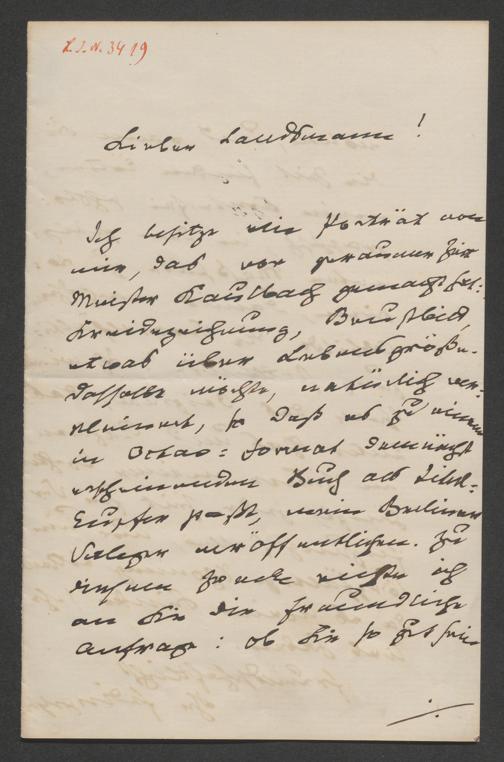 L.J.N. 3419
Lieber Landsmann!
Ich besitze ein Porträt von
mir, das vor geraumer Zeit
Meister Kaulbach gemacht hat:
Kreidezeichnung, Brustbild,
etwas über Lebensgröße.
Dasselbe möchte, natürlich ver-
kleinert, so daß es zu einem
in Octav-Format demnächst
erscheinenden Buch als Titel-
Kupfer paßt, mein Berliner
Verleger veröffentlichen. Zu
diesem Zweck richte ich
an Sie die freundliche
Anfrage: ob Sie so gut sein
./.